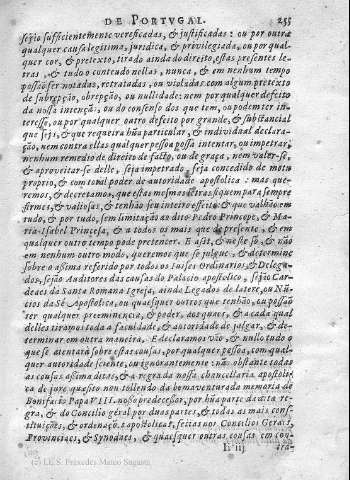 DE PORTVGAL. 255
sejão sufficientemente vereficadas, & justificadas: ou por outra
qualquer causa legitima, juridica, & previlegiada, ou por qual
quer cor, & pretexto, tirado ainda do direito, essas presentes le
tras, & todo o conteudo nellas, nunca, & em nenhum tempo
possão ser notadas, retratadas, ou violadas com algum pretexto
de subrepção, obrepção, ou nullidade: nem por qualquer defeito
da nossa intenção, ou do consenso dos que tem, ou podem ter in
teresse, ou por qualquer outro defeito por grande, & substancial
que seja, & que requeira hũa particular, & individual declara
ção, nem contra ellas qualquer pessoa possa intentar, ou impetrar
nenhum remedio de direito de facto, ou de graça, nem valer-se,
& aproveitar-se delle, seja impetrado, seja concedido de motu
proprio, & com total poder de autoridade apostolica: mas que-
remos, & decretamos, que estas mesmas letras fiquem para sempre
firmes, & valiosas, & tenhão seu inteiro effeito: & que valhão em
tudo, & por tudo, sem limitação ao dito Pedro Principe, & Ma-
ria Isabel Princesa, & a todos os mais que de presente, & em
qualquer outro tempo pode pretencer. E assi, & nesse só, & não
em nenhum outro modo, queremos que se julgue, & determine
sobre o assima referido por todos os Iuises Ordinarios, & Delega-
dos, sejão Auditores das causas do Palacio apostolico, sejão Car-
deaes da Santa Romana Igreja, ainda Legados de latere, ou Nũ-
cios da Sé Apostolica, ou quaesquer outros que tenhão, ou possão
ter qualquer preeminencia, & poder, aos quaes, & a cada qual
delles tiramos toda a faculdade, & autoridade de julgar, & de-
terminar em outra maneira. E declaramos vão, & nullo tudo o
que se attentará sobre estas causas, por qualquer pessoa, com qual-
quer autoridade sciente, ou ignorantemente: não obstante todas
as cousas assima ditas, & a regra da nossa chancellaria apostoli-
ca de jure quæsito non tollendo da bemaventurada memoria de
Bonifacio Papa VIII. nosso predecessor, por hũa parte da dita re-
gra, & do Concilio géral por duas partes, & todas as mais cons-
tituições, & ordenaçõ. s apostolicas, feitas nos Concilios Gerais,
Provinciaes, & Synodaes, & quaesquer outras cousas em con-
Ii iij tra-
(c) I.E.S. Praxedes Mateo Sagasta